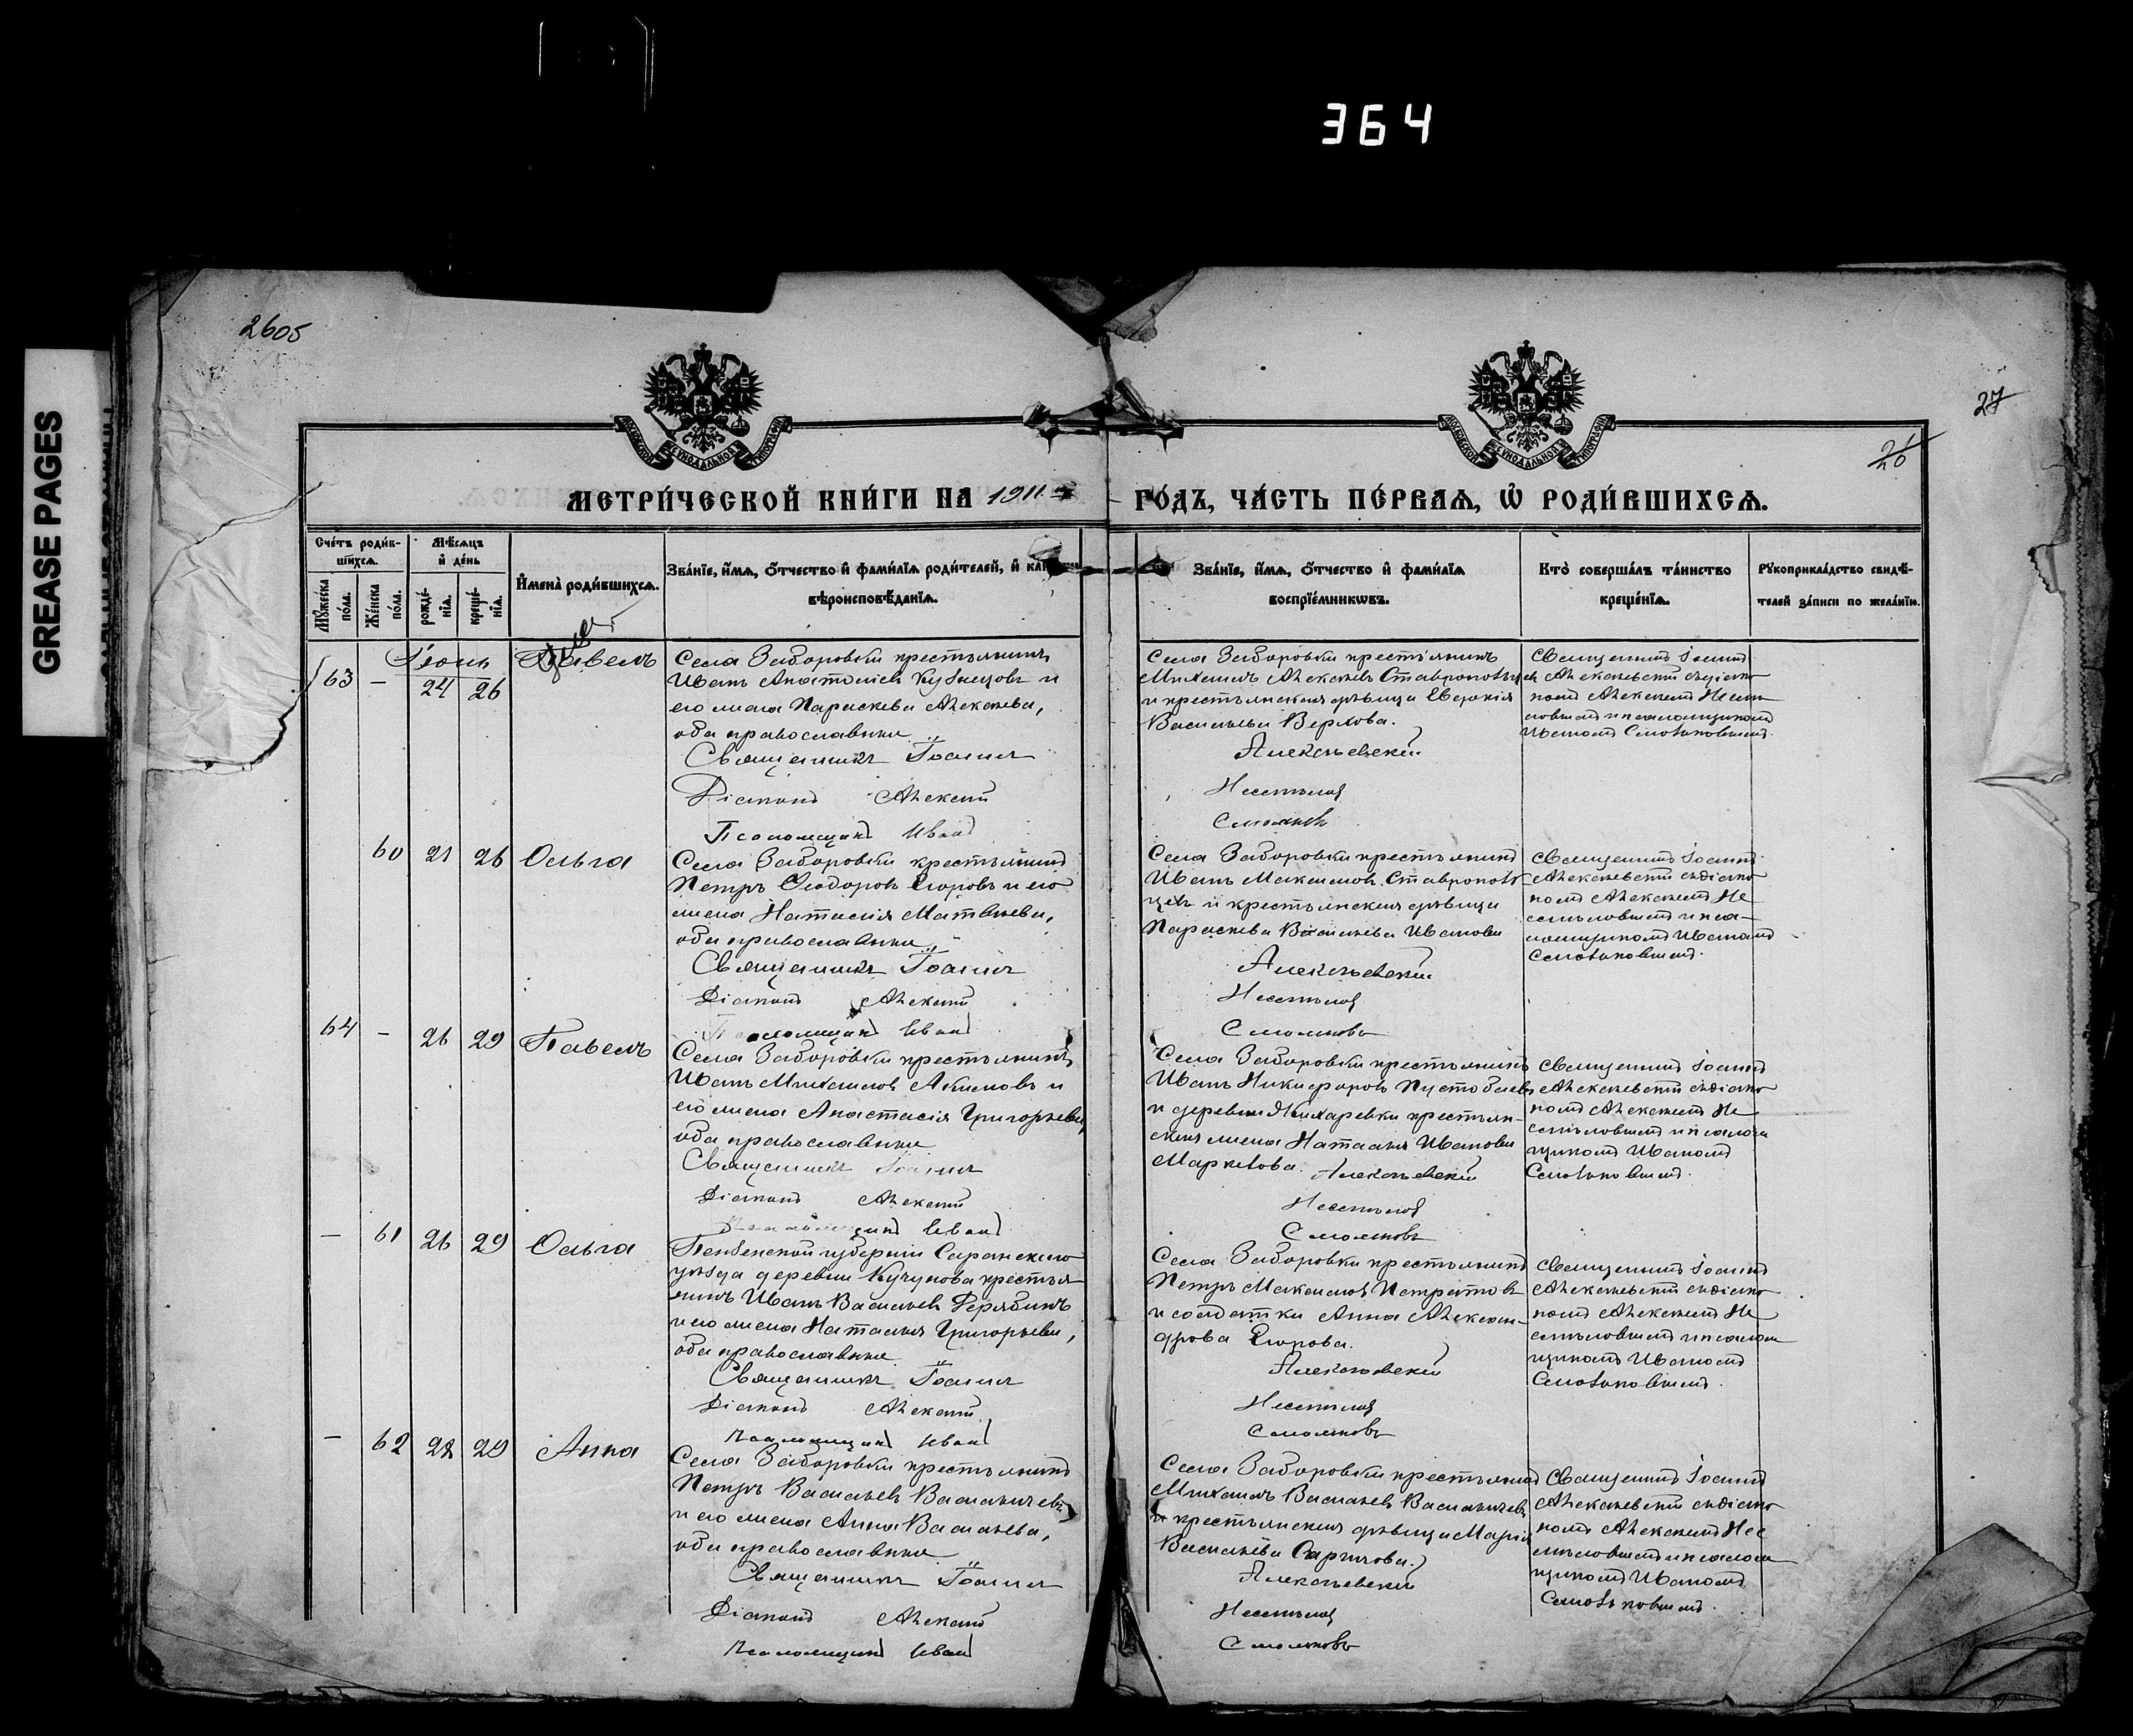 364
GREASE PAGES
2605
27
26
МЕТРИ́ЧЕСКОЙ КНИ́ГИ НА 1911 ГО́ДЪ, ЧА́СТЬ ПЕ́РВАЯ, Ѡ҆ РОДИ́ВШИХСЯ.
Сче́тъ роди́в-
шихся.
Мꙋ́жеска по́ла.
Же́нска по́ла.
Мѣ́сяцъ
и҆ де́нь
рожде́-
нїя.
креще́-
нїя.
И҆мена̀ роди́вшихся.
Зва́нїе, и҆́мя, ѻ҆́тчество и҆ фами́лїя роди́телей, и҆
вѣроисповѣ́данїя.
Зва́нїе, и҆́мя, ѻ҆́тчество и҆ фами́лїя
воспрїе́мникѡвъ.
Кто̀ соверша́лъ та́инство
креще́нїя.
Рꙋкоприкла́дство свидѣ́-
телей за́писи по жела́нїю.
63 – Іюнь 24 26 Павелъ
Села Заборовки крестьянинъ
Иванъ Анатоліевъ Кузнецовъ и
его жена Параскева Алексѣева,
оба православные
Священникъ Іоаннъ
Діаконъ Алексѣй
Псаломщикъ Иванъ
Села Заборовки крестьянинъ
Михаилъ Алексѣевъ Ставропольцевъ
и крестьянская дѣвица Евдокія
Васильева Верхова.
Алексѣевскій
Несмѣловъ
Смольковъ
Священникъ Іоаннъ
Алексѣевскій съ діако-
номъ Алексѣемъ Несмѣ-
ловымъ и псаломщикомъ
Иваномъ Смольковымъ.
60 21 26 Ольга
Села Заборовки крестьянинъ
Петръ Ѳеодоровъ Егоровъ и его
жена Наталія Матвѣева,
оба православные
Священникъ Іоаннъ
Діаконъ Алексѣй
Псаломщикъ Иванъ
Села Заборовки крестьянинъ
Иванъ Максимовъ Ставрополь-
цевъ и крестьянская дѣвица
Параскева Васильева Иванова
Алексѣевскій
Несмѣловъ
Смольковъ
Священникъ Іоаннъ
Алексѣевскій съ діако-
номъ Алексѣемъ Не
смѣловымъ и пса-
ломщикомъ Иваномъ
Смольковымъ.
64 – 26 29 Павелъ
Села Заборовки крестьянинъ
Иванъ Михаиловъ Акимовъ и
его жена Анастасія Григорьева,
оба православные
Священникъ Іоаннъ
Діаконъ Алексѣй
Псаломщикъ Иванъ
Села Заборовки крестьянинъ
Иванъ Никифоровъ Пустобаевъ
и деревни Жихаревки крестьян-
ская жена Наталья Иванова
Маркелова. Алексѣевскій
Несмѣловъ
Смольковъ
Священникъ Іоаннъ
Алексѣевскій съ діако-
номъ Алексѣемъ Не
смѣловымъ и псалом
щикомъ Иваномъ
Смольковымъ.
– 61 26 29 Ольга
Пензенской губерніи Саранскаго
уѣзда деревни Кучукова крестья-
нинъ Иванъ Васильевъ Дерябинъ
и его жена Наталья Григорьева,
оба православные
Священникъ Іоаннъ
Діаконъ Алексѣй
Псаломщикъ Иванъ
Села Заборовки крестьянинъ
Петръ Максимовъ
и солдатка Анна Алексан-
дрова Егорова.
Алексѣевскій
Несмѣловъ
Смольковъ
Священникъ Іоаннъ
Алексѣевскій съ діако-
номъ Алексѣемъ Не
смѣловымъ и псалом
щикомъ Иваномъ
Смольковымъ.
– 62 28 29 Анна
Села Заборовки крестьянинъ
Петръ Васильевъ Василичевъ
и его жена Анна Васильева,
оба православные
Священникъ Іоаннъ
Діаконъ Алексѣй
Псаломщикъ Иванъ
Села Заборовки крестьянинъ
Михаилъ Васильевъ Василичевъ
и крестьянская дѣвица Марія
Васильева
Алексѣевскій
Несмѣловъ
Смольковъ
Священникъ Іоаннъ
Алексѣевскій съ діако-
номъ Алексѣемъ Нес
мѣловымъ и псалом
щикомъ Иваномъ
Смольковымъ.